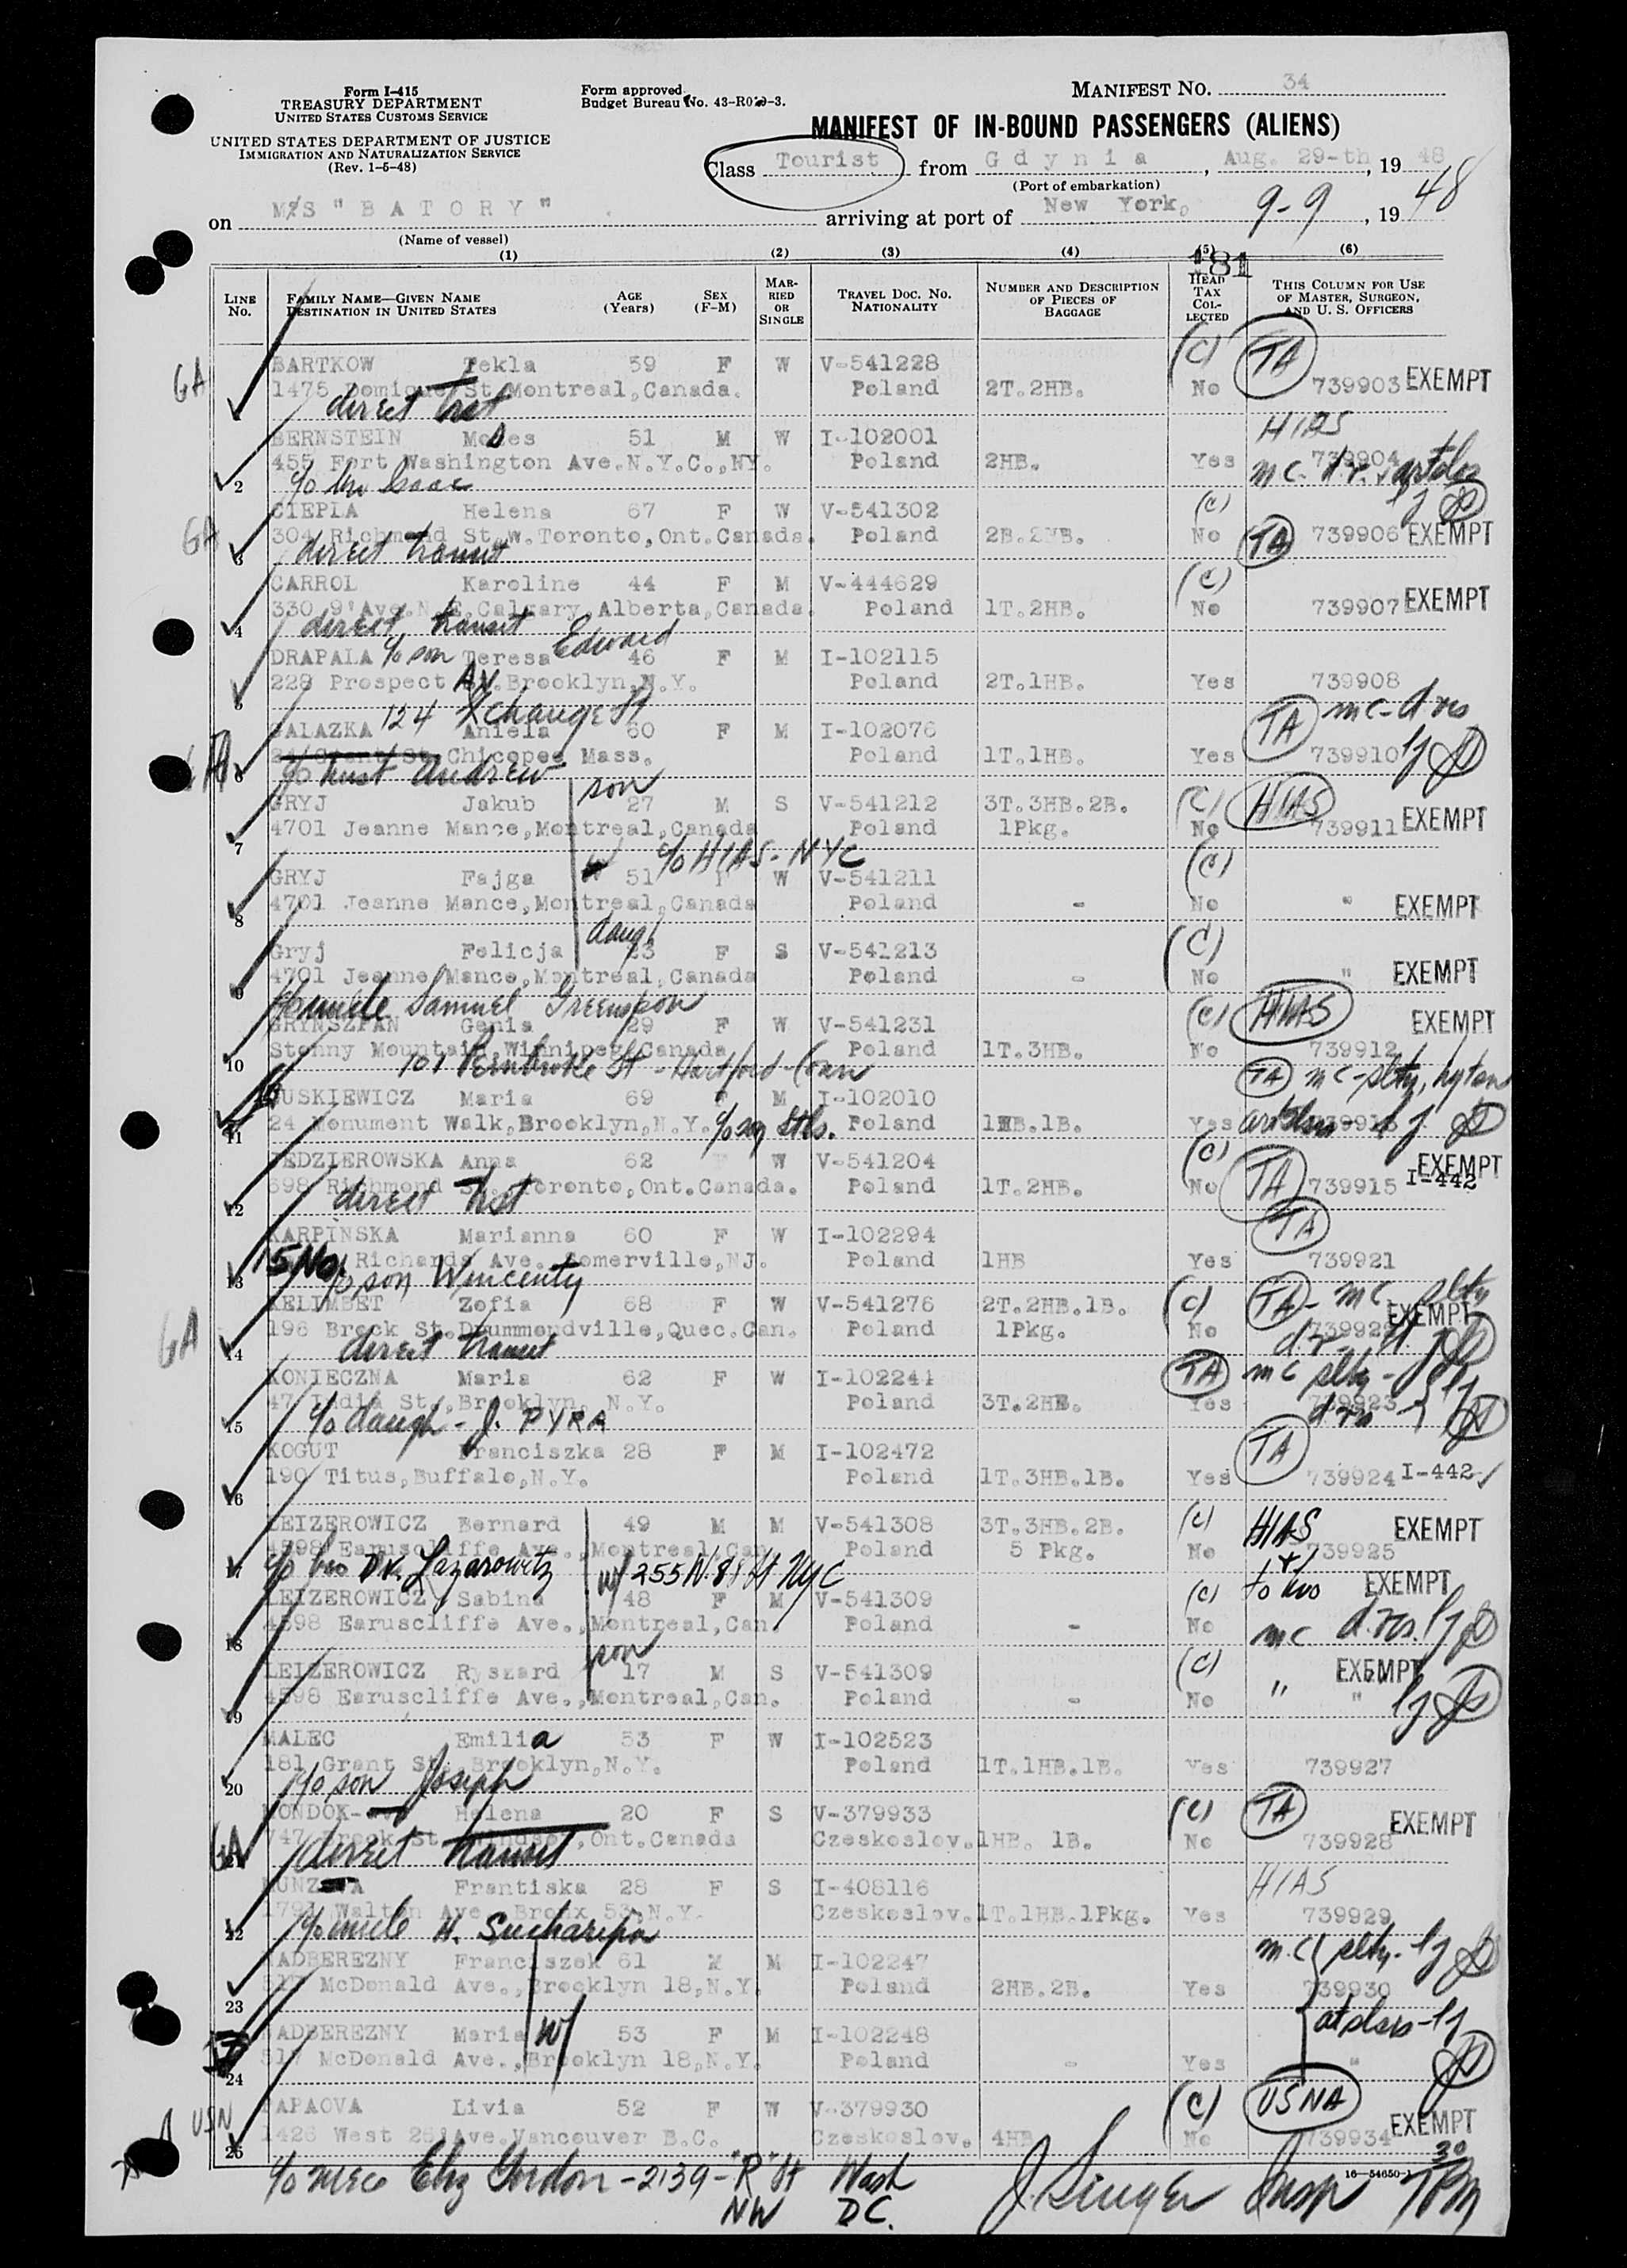 Form I-415
TREASURY DEPARTMENT
UNITED STATES CUSTOMS SERVICE
UNITED STATES DEPARTMENT OF JUSTICE
IMMIGRATION AND NATURALIZATION SERVICE
(Rev. 1-5-48)
Form approved.
Budget Bureau No. 43-R029-3.
MANIFEST NO. 34
MANIFEST OF IN-BOUND PASSENGERS (ALIENS)
Class Tourist from Gdynia, Aug. 29-th, 19 48
(Port of embarkation)
on M/S "BATORY" arriving at port of New York, 9-9, 19 48
(Name of vessel)
(1) (2) (3) (4) (5) (6)
181
LINE No. FAMILY NAME—GIVEN NAME DESTINATION IN UNITED STATES AGE (Years) SEX (F-M) MARRIED OR SINGLE TRAVEL DOC. NO. NATIONALITY NUMBER AND DESCRIPTION OF PIECES OF BAGGAGE HEAD TAX COLLECTED THIS COLUMN FOR USE OF MASTER, SURGEON, AND U. S. OFFICERS
BARTKOW Tekla 59 F W V-541228 (C) TA
GA 1475 St. Montreal, Canada. Poland 2T.2HB. No 739903 EXEMPT
direct trst
BERNSTEIN Moses 51 M W I-102001 HIAS
455 Fort Washington Ave.N.Y.C.,NY. Poland 2HB. Yes 739904
2 c/o Isaac mc. d.r.
CIEPLA Helena 67 F W V-541302 (C)
GA 304 Richmond St.W.Toronto,Ont.Canada. Poland No TA 739906 EXEMPT
3 direct transit
CARROL Karoline 44 F M V-444629 (C)
330 9'Ave.N.E.Calgary,Alberta,Canada. Poland 1T.2HB. No 739907 EXEMPT
4 direct transit
DRAPALA c/o son Teresa Edward 46 F M I-102115
228 Prospect AV.Brooklyn,N.Y. Poland 2T.1HB. Yes 739908
5 124 Xchange St
GALAZKA Aniela 60 F M I-102076 TA mc-d.res
Chicopee Mass. Poland 1T.1HB. Yes 739910
6 c/o husb Andrew
GRYJ Jakub son 27 M S V-541212 3T.3HB.2B. (C) HIAS
4701 Jeanne Mance,Montreal,Canada Poland 1Pkg. No 739911 EXEMPT
7 c/o HIAS-NYC
GRYJ Fajga W 51 F W V-541211 (C)
4701 Jeanne Mance,Montreal,Canada Poland - No " EXEMPT
8
Gryj Felicja daug 23 F S V-541213 (C)
4701 Jeanne Mance,Montreal,Canada Poland - No " EXEMPT
9 c/o uncle Samuel Greenspon
GRYNSZPAN Genia 29 F W V-541231 (C) HIAS EXEMPT
Stonny Mountain,Winnipeg,Canada Poland 1T.3HB. No 739912
10 101 Pembroke St - Hartford-Conn
Maria 69 M I-102010 TA mc-slty,
24 Monument Walk,Brooklyn,N.Y. Poland 1HB.1B. Yes
11
JEDZIEROWSKA Anna 62 W V-541204 (C) TA EXEMPT
698 Richmond St.Toronto,Ont.Canada. Poland 1T.2HB. No 739915 I-442
12 direct trst
KARPINSKA Marianna 60 F W I-102294 TA
15 No. Richards Ave. Somerville,NJ. Poland 1HB Yes 739921
13 c/o son Wincenty
KELIMBET Zofia 68 F W V-541276 2T.2HB.1B. (C) TA - mc slty EXEMPT
GA 196 Brock St.Drummondville,Quec.Can. Poland 1Pkg. No
14 direct transit
KONIECZNA Maria 62 F W TA mc slty -
47 India St.,Brooklyn, N.Y. Poland 3T.2HB. Yes 739923
15 c/o daugh - J. PYRA
KOGUT Franciszka 28 F M I-102472 TA
190 Titus,Buffalo,N.Y. Poland 1T.3HB.1B. Yes 739924 I-442
16
LEIZEROWICZ Bernard 49 M M V-541308 3T.3HB.2B. (C) HIAS EXEMPT
4598 Earuscliffe Ave.,Montreal,Can. Poland 5 Pkg. No 739925
17 c/o bro DK. Lazarowitz W/ 255 N. NYC
LEIZEROWICZ Sabina 48 F M V-541309 (C) EXEMPT
4598 Earuscliffe Ave.,Montreal,Can. Poland - No mc d.res.
18
LEIZEROWICZ Ryszard son 17 M S V-541309 (C) EXEMPT
4598 Earuscliffe Ave.,Montreal,Can. Poland - No "
19
MALEC Emilia 53 F W I-102523
181 Grant St.,Brooklyn,N.Y. Poland 1T.1HB.1B. Yes 739927
20 c/o son Joseph
MONDOK- Helena 20 F S V-379933 (C) TA
GA 747 Brock St. Windsor,Ont.Canada Czeskoslov. 1HB. 1B. No 739928 EXEMPT
direct transit
Frantiska 28 F S I-408116 HIAS
1791 Walton Ave. Bronx 53,N.Y. Czeskoslov. 1T.1HB.1Pkg. Yes 739929
22 c/o uncle H. Sucharipa
NADBEREZNY Franciszek 61 M M I-102247 mc slty.
517 McDonald Ave.,Brooklyn 18,N.Y. Poland 2HB.2B. Yes 739930
23
NADBEREZNY Maria W/ 53 F M I-102248
517 McDonald Ave.,Brooklyn 18,N.Y. Poland - Yes "
24
PAPAOVA Livia 52 F W V-379930 (C) USNA
USN 1426 West Ave.Vancouver B.C. Czeskoslov. 4HB No 739934 EXEMPT
25
c/o niece Eliz Gordon - 2139 - "R" St Wash
NW DC.
J. Singer Insp 7 30 PM
16—54650-1